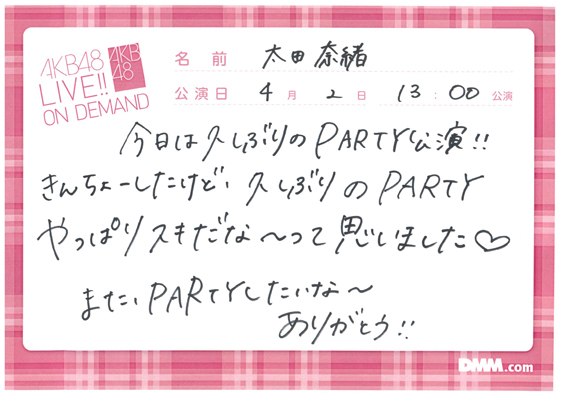 AKB48
LIVE!!
ON DEMAND
AKB
48
名前 太田奈緒
公演日 4月2日 13:00公演
今日は久しぶりのPARTY公演!!
きんちょーしたけど、久しぶりのPARTY
やっぱりスキだな〜って思いました♡
また、PARTYしたいな〜
ありがとう!!
DMM.com